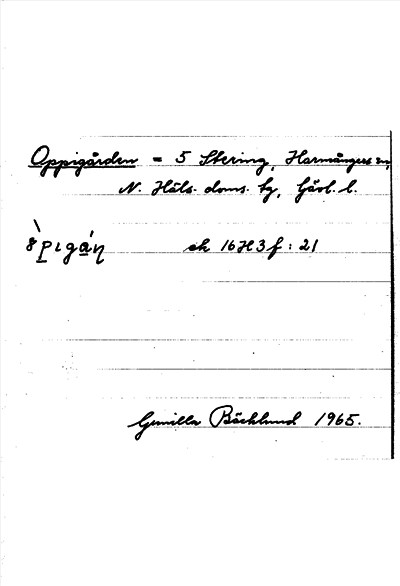 Oppigården = 5 Stering, Harmångers sn,
N. Häls. doms. tg, Gävl. l.
ek 16H3f:21
Gunilla Bäcklund 1965.